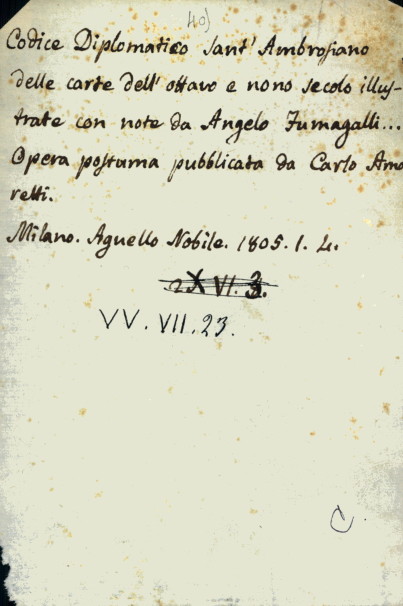 40)
Codice Diplomatico Sant' Ambrosiano
delle carte dell' ottavo e nono secolo illus-
trate con note da Angelo Fumagalli...
Opera postuma pubblicata da Carlo Amo
retti.
Milano. Agnello Nobile. 1805. 1. 4.
VV. VII. 23.
C.